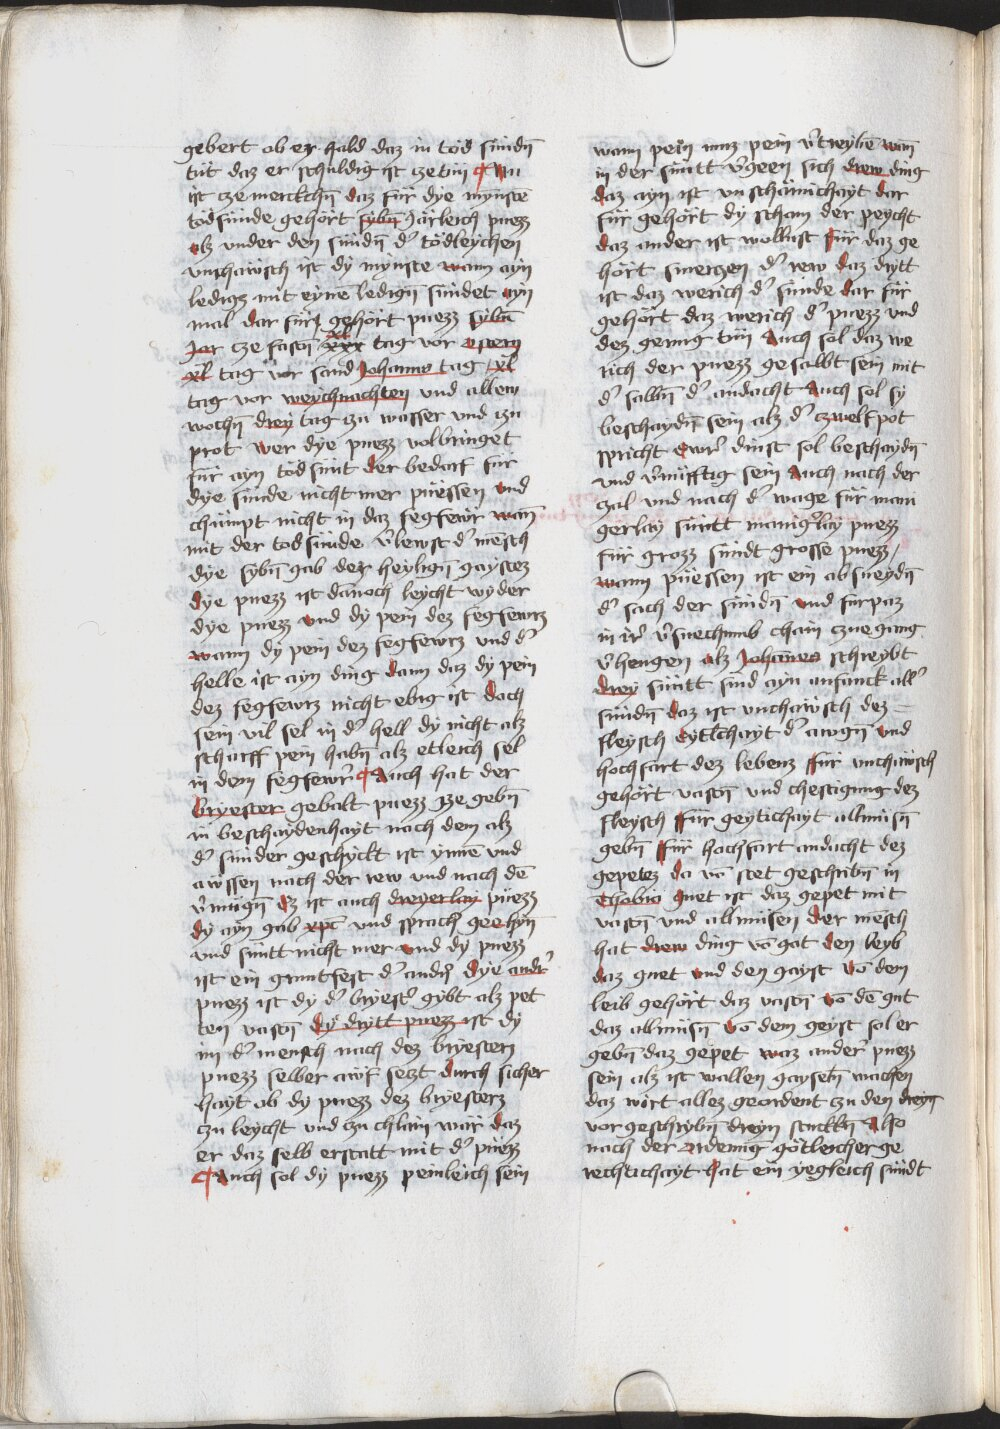 gebert ob er hald daz in tod sündn̄
tüt daz er schuldig ist ze tün ¶ Nu
ist cze merckchn̄ daz für dye mynste
todsünde gehört sybn̄ Järleich puezz
alz vnder den sündn̄ d' tödleychen
vnchaẅsch ist dy mynste wann ayn
ledigs mit eyne ledign̄ sündet ayn
mal dar für gehört puezz sybn̄
Jar cze fastn̄ xl tag vor ostern
xl tag vor sand Johanns tag xl
tag vor weychnachten vnd allew
wochn̄ drey tag zu wasser vnd zu
prot wer dye puezz volbringet
für ayn tod sünt der bedarf für
dye sünde nicht mer püessen vnd
chumpt nicht in daz fegfewr wan̄
mit der todsünde v'lewst d' mēsch
dye sybn̄ gab der heylign̄ gaystez
dye puezz ist dānoch leycht wyder
dye puezz vnd dy pein dez fegfewrz
wann dy pein dez fegfewrz vnd d'
helle ist ayn ding dann daz dy pein
dez fegfewrz nicht ebig ist dach
sein vil sel in d' hell dy nicht alz
scharff pein habn̄ alz etleich sel
in dem fegfewr ¶ Auch hat der
bryester gebalt puezz ze gebn̄
in beschaydenhayt nach dem alz
d' sünder geschyckt ist ynnē vnd
awssen nach der rew vnd nach dē
v'mügn̄ Ez ist auch dreyerlay püezz
dy ayn gab xp̄c vnd sprach gee hyn
vnd sünt nicht mer vnd dy puezz
ist ein gruntfest d' and'n dye and'
puezz ist dy d' bryest' gybt alz pet
ten vastn̄ dy drytt puezz ist dy
im d' mensch nach dez bryestern
puezz selber awf setzt durch sicher
hayt ob dy puezz dez bryesterz
zu leycht vnd zu chlain wär daz
er daz selb erstatt mit d' püezz
¶ Auch sol dy puezz peinleich sein
wann pein muz pein v'treybē wan̄
in der sünt v'geen sich drew ding
daz ayn ist vnschämichayt dar
für gehört dy scham der peycht
daz ander ist wollust für daz ge
hört smerczen d' rew daz drytt
ist daz werich d' sünde dar für
gehört daz werich d' puezz vnd
dez genug tün Auch sol daz we
rich der puezz gesalbt sein mit
d' salbn̄ d' andacht Auch sol sy
beschaydn̄ sein alz d' czwelfpot
spricht ewr' dinst sol beschaydn̄
vnd v'nüfftig sein Auch nach der
zal vnd nach d' wage für mani
gerlay sünt manig'lay puezz
für grozz sündt grosse puezz /
wann püessen ist ein absneydn̄
d' sach der sündn̄ vnd fürpaz
in ir' v'suechnüb chain zuegang
v'hengen alz Johānes schreybt
drey sünt sind ayn anfanck all'
sündn̄ daz ist vnchaẅsch dez
fleysch eytlchayt d' awgn̄ vnd
hochfart dez lebenz für vnchaẅsch
gehört vastn̄ vnd chestigung dez
fleysch für geytichayt allmüsn̄
gebn̄ für hachfart andacht dez
gepetez da vō stet geschribn̄ in
Thobie guet ist daz gepet mit
vastn̄ vnd allmüsen der mēsch
hat drew ding vō got den leyb
daz guet vnd den gayst vō dem
leib gehört daz vastn̄ vō dē gut
daz allmüsn̄ vō dem geyst sol er
gebn̄ daz gepet waz ander' puezz
sein alz ist wallen gaysetn̄ wachen
daz wirt allez geordent zu den dreyn̄
vorgeschribn̄ dreyn stuckn̄ Also
nach der ordenung götleicher ge
rechtichayt hat ein yegleich sündt